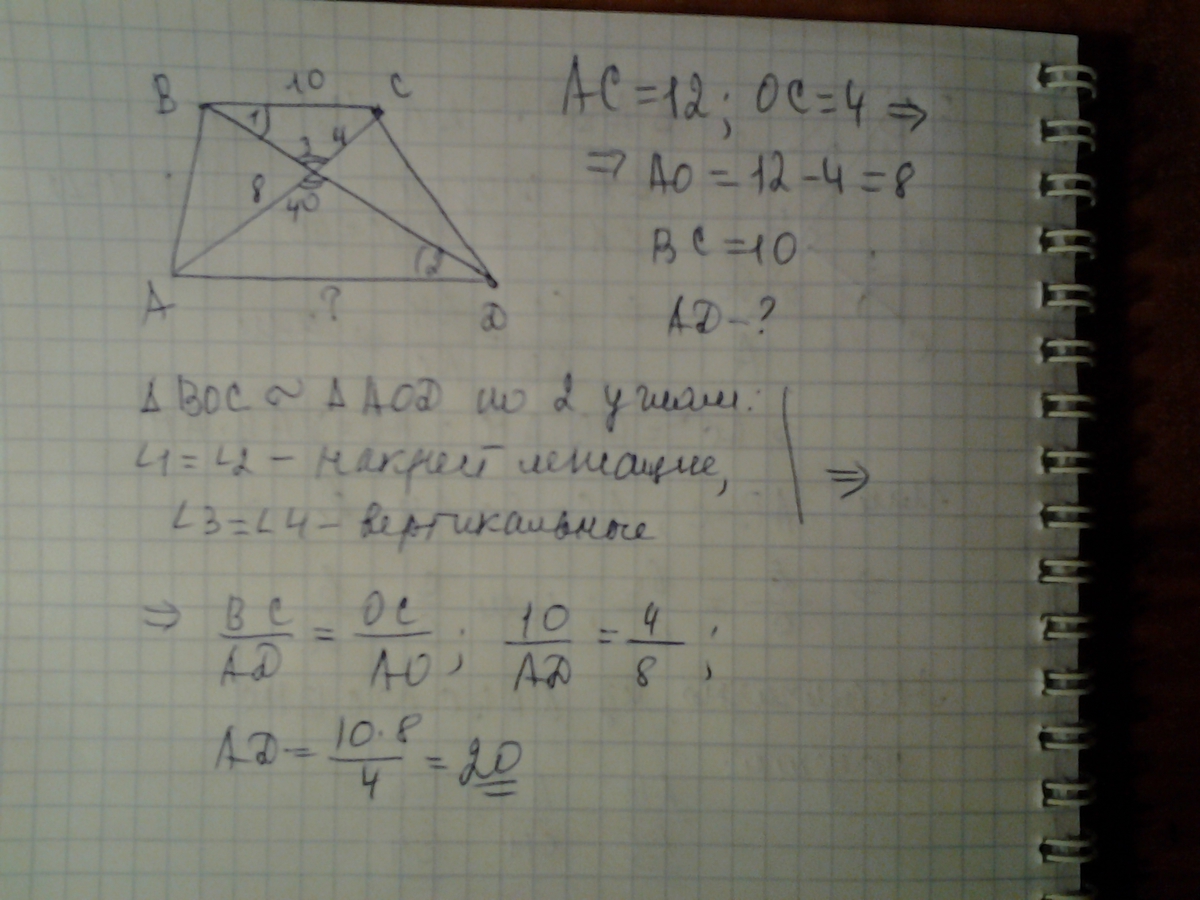 B 10 C
1 3 4
8 4 O
2
A ? D
AC = 12; OC = 4 ⇒
⇒ AO = 12 - 4 = 8
BC = 10
AD - ?
Δ BOC ~ Δ AOD по 2 углам:
∠1 = ∠2 - накрест лежащие, ⇒
∠3 = ∠4 - вертикальные
⇒ BC/AD = OC/AO; 10/AD = 4/8;
AD = 10·8/4 = 20